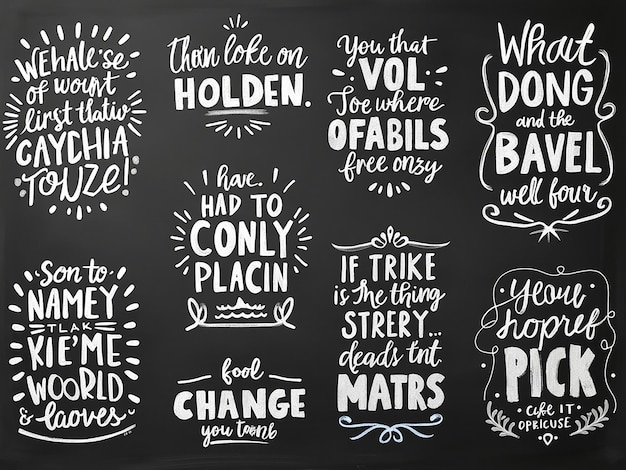 WEHALE'SE
of wourt
lirst thatiw
CAYCHIA
TOUZE!
Thown loke on
HOLDEN.
You that
VOL.
Joe where
OFABILS
free onsy
What
DONG
and the
BAVEL
well four
I have.
HAD TO
CONLY
PLACIN
Son to
NAMEY
TLAK
KIE'ME
WOORLD
& laoves
fool
CHANGE
you toons
IF TRIKE
is The thing
STRERY...
deads tnt.
MATRS
yeour
hopref
PICK
CUFE IT
OPRICUSE